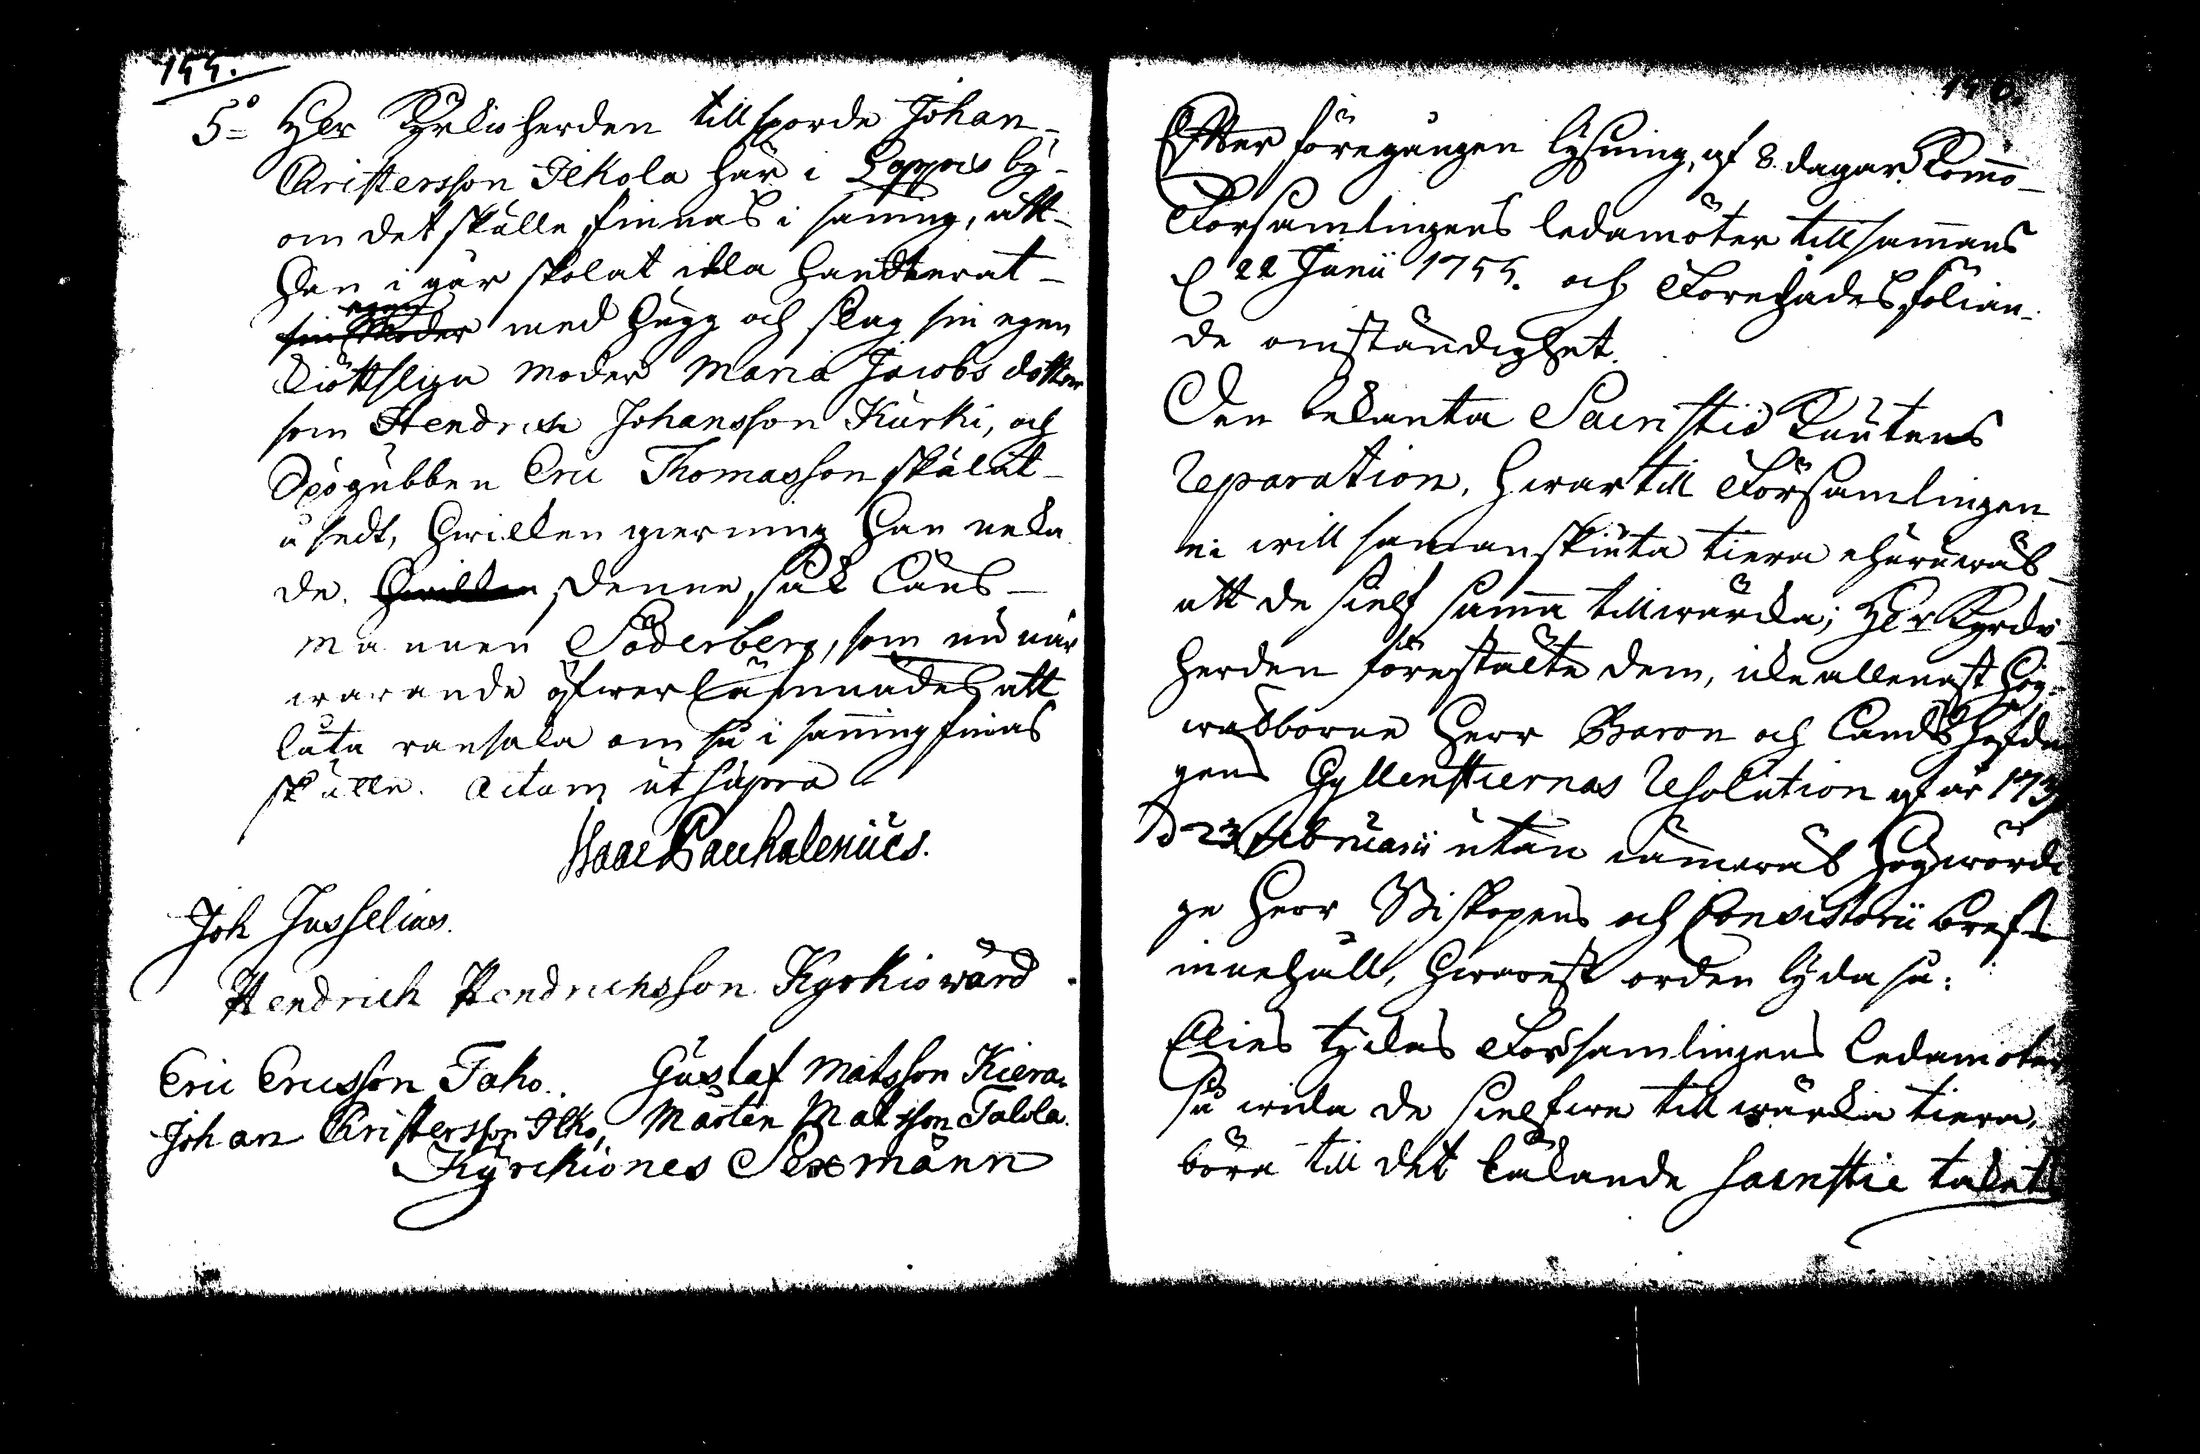 155.
5=o Her Kyrkioherden tillsporde Johan
Christersson Ilkola här i Loppis by-
om det skulle finnas i sanning, att-
han i går skolat illa handterat-
med hugg och slag sin egen
kiöttsliga moder Maria Jacobs dotter
som Hendrich Johansson Kurki, och
Eric Thomasson skulat-
åsedt, hwilken gierning han neka
de. denne sak Läns-
mannen Söderberg, som nu när
warande öfwerlämnades att
låta ransaka om så i sanning finnas
skulle. Actum ut supra
Isaac Pauhalenius.
Joh Jusselius.
Hendrich Hendrichsson Kyrkiowärd.
Eric Ericsson Taho. Gustaf Matsson Kiera.
Johan Christersson Ilko, Mårten Matsson Talola.
Kyrckiones Sexmänn
Efter föregången lysning, af 8. dagar. Kommo-
Församlingens ledamöter tillsammans
d 22 Junii 1755. och Forehades följan-
de omständighet.
Den bekanta Sacristie Knutens
reparation, hwartill Församlingen
ei will samanskiuta tiera ehuruwäl
att de sielf samma tillwärka; Her Kyrckio-
herden förestälte dem, icke allenast Hög-
wälborne Herr Baron och Landshöfdin
gens Gyllenstiernas Resolution af år 173
d 23 februarii utan jämwäl Högwördi
ge Herr Biskopens och Consistorii bref
innehåll, hwarest orden lyda så:
Elies tyckes Församlingens ledamöter
så wida de sielfwe till wärka tiera,
böra till det läkande sacristie taket